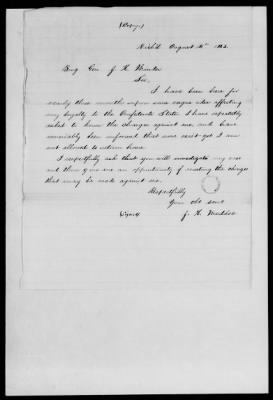 (Copy)
Brig Gen J. H. Winder
Sir,
I have been here for
nearly three months upon some vague idea affecting
my loyalty to the Confederate States. I have repeatedly
asked to know the charges against me, and have
invariably been informed that none exist yet I am
not allowed to return home.
I respectfully ask that you will investigate my case
and then give me an opportunity of meeting the charges
that may be made against me.
Respectfully
Your obt servt
(Signed) J. H.